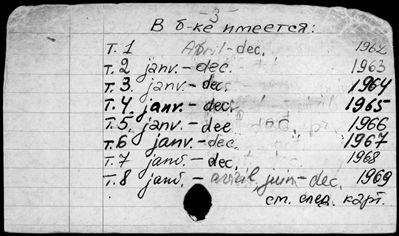 -3-
В б-ке имеется:
т. 1 Avril - dec. 1962
т. 2 janv. - dec. 1963
т. 3. janv. - dec. 1964
т. 4. janv. - dec. 1965
т. 5. janv. - dec 1966
т. 6 janv. - dec. 1967
т. 7 janv. - dec. 1968
т. 8 janv. - avril, juin - dec. 1969
см. след. карт.